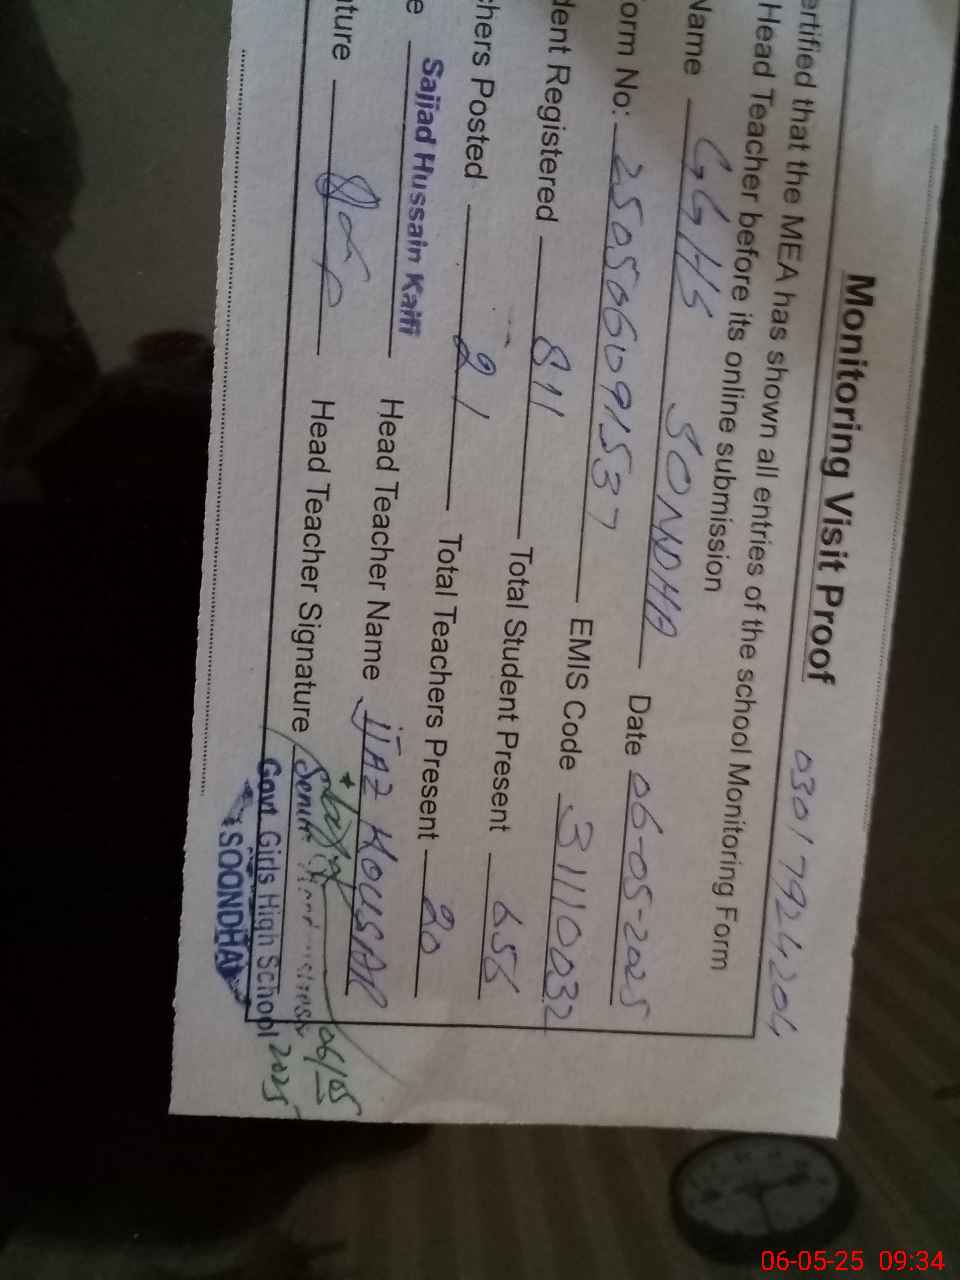 Monitoring Visit Proof
03017924204
ertified that the MEA has shown all entries of the school Monitoring Form
Head Teacher before its online submission
Name GGHS SONDHA Date 06-05-2025
orm No: 250506091537 EMIS Code 31110032
dent Registered 811 Total Student Present 656
chers Posted 21 Total Teachers Present 20
e Sajjad Hussain Kaifi Head Teacher Name IJAZ KOUSAR
ature Head Teacher Signature
06/05
2025
Govt Girls High School
SOONDHA
06-05-25 09:34